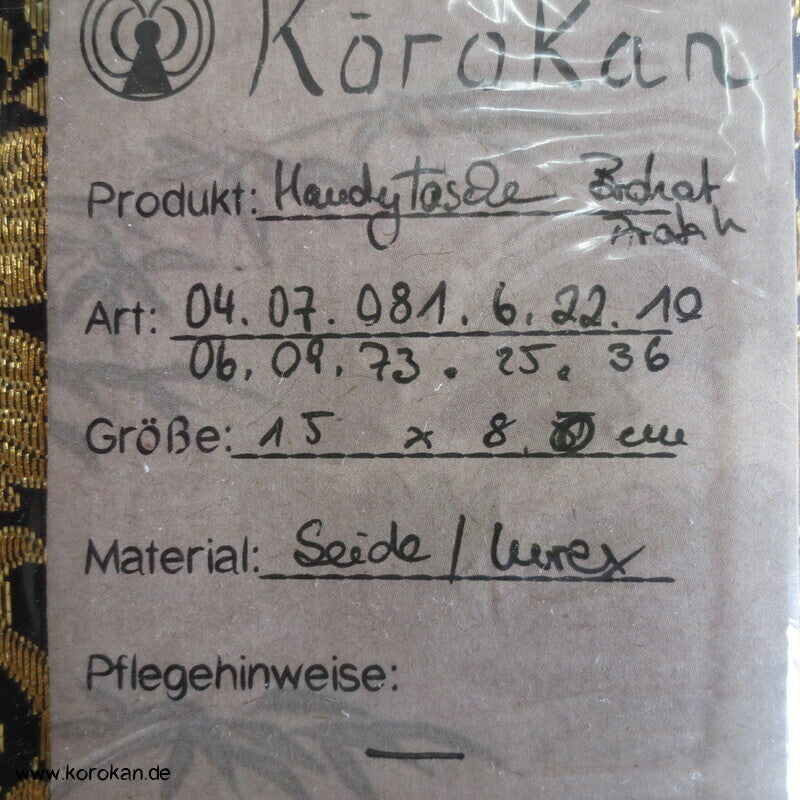 KōroKan
Produkt: Handytasche Brokat
Art: 04. 07. 081. 6. 22. 10
06. 09. 73. 25. 36
Größe: 15 x 8. cm
Material: Seide / Lurex
Pflegehinweise:
—
www.korokan.de